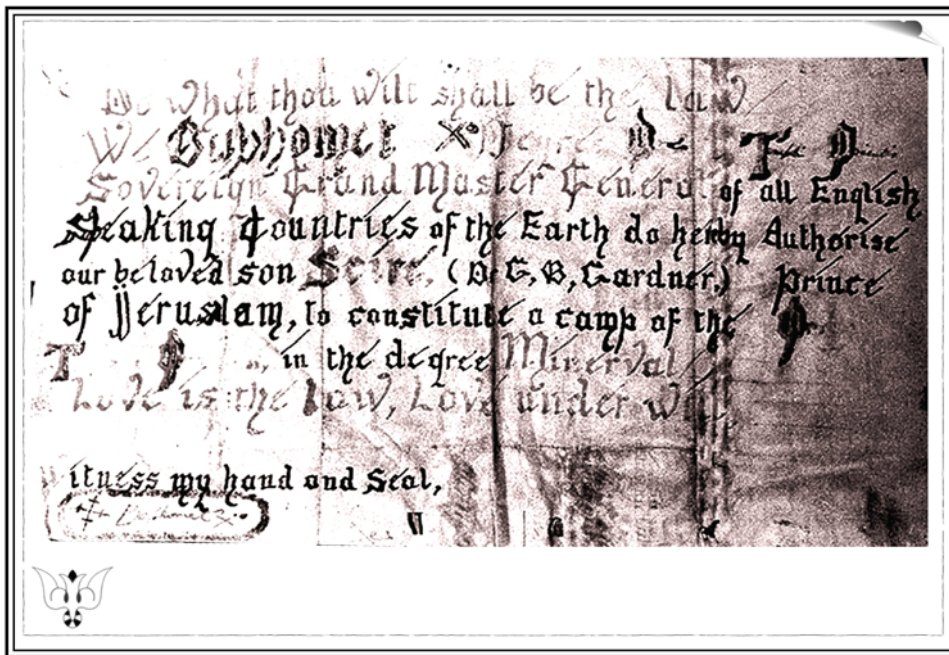 Do what thou wilt shall be the law
We Baphomet X° Degree
Sovereign Grand Master General of all English
Speaking Countries of the Earth do hereby Authorise
our beloved son Scire, (Dr. G, B, Gardner,) Prince
of Jeruslam, to constitute a camp of the
in the degree Minerval
Love is the law, Love under will
itness my hand and Seal,